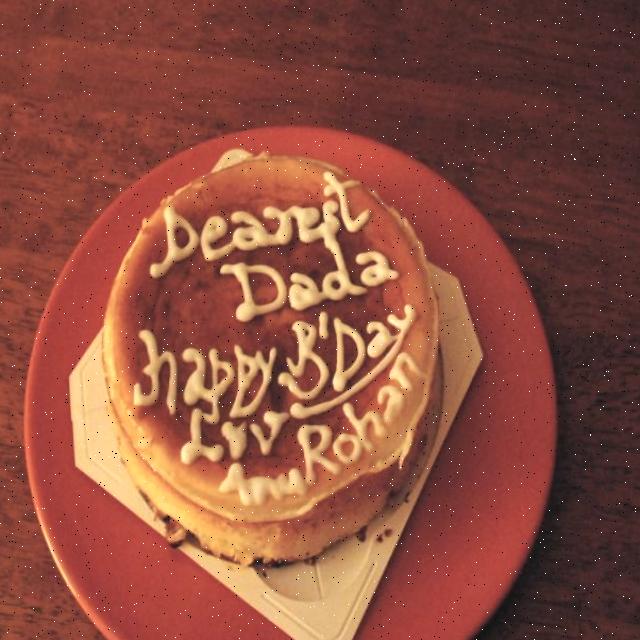 Dearest
Dada
happy B'Day
Luv
Anu Rohan